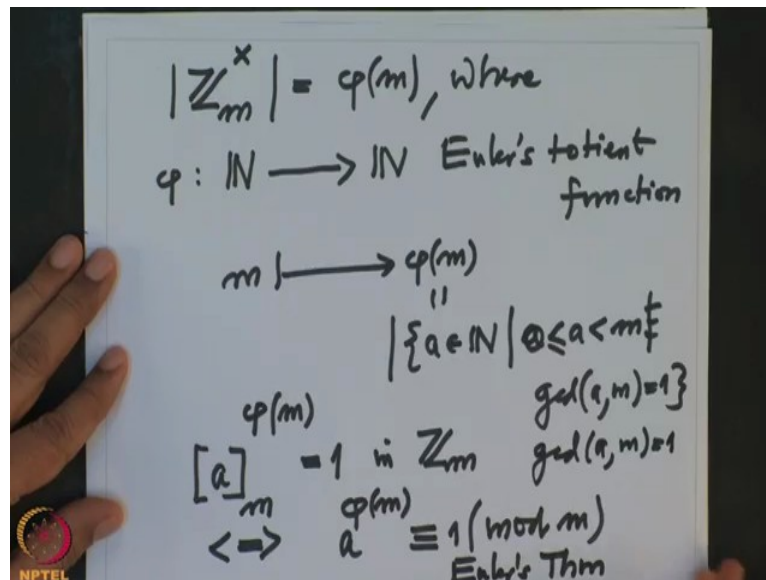 |ℤₘ^×| = φ(m), where
φ : ℕ ⟶ ℕ Euler's totient
function
m ⟼ φ(m)
||
|{a ∈ ℕ | 0 ≤ a < m
gcd(a, m) = 1}
[a]ₘ^φ(m) = 1 in ℤₘ gcd(a, m) = 1
⟺ a^φ(m) ≡ 1 (mod m)
Euler's Thm
NPTEL